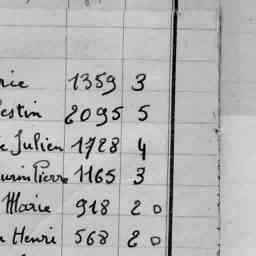 rie 1359 3
estin 2095 5
e Julien 1728 4
urin Pierre 1165 3
Marie 918 2 0
n Henri 568 2 0